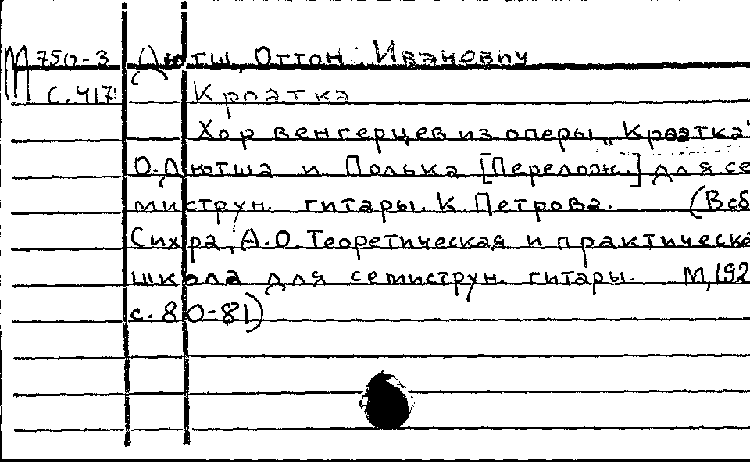 М 750-3 Дютш, Оттон Иванович
с. 417 Кроатка
Хор венгерцев из оперы „Кроатка"
О. Дютша и Полька [Перелож.] для се
миструн. гитары К. Петрова. (В сб
Сихра, А.О. Теоретическая и практическа
школа для семиструн. гитары. М, 192
с. 80-81)